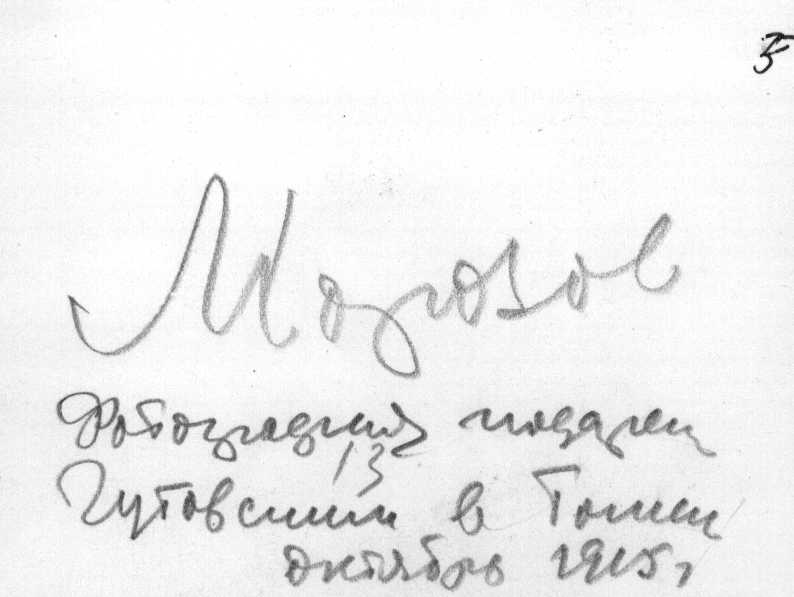 5
Морозов
Фотография подарен
13
Гутовским в Томске
октябрь 1915 г